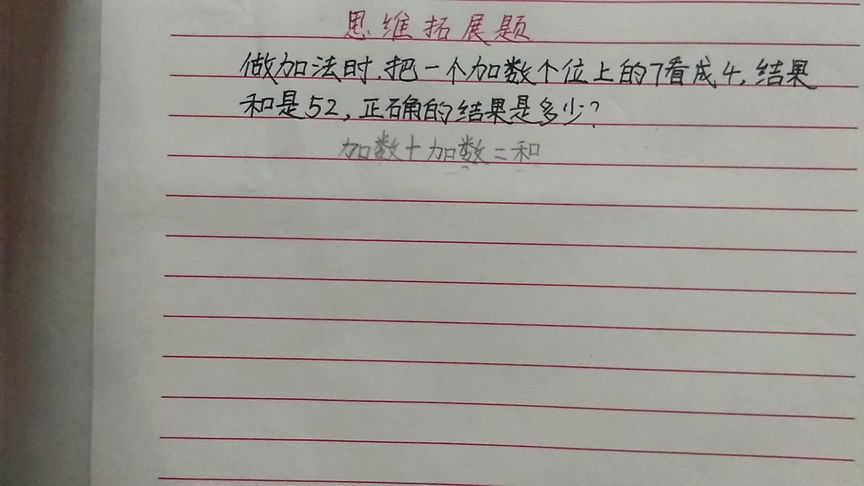 思维拓展题
做加法时,把一个加数个位上的7看成4,结果
和是52,正确的结果是多少?
加数+加数=和